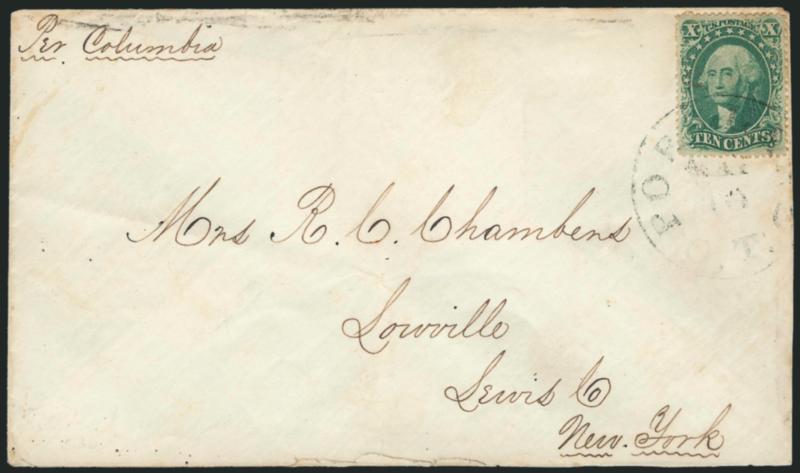 Per Columbia
X U.S. POSTAGE X
TEN CENTS
Mrs R. C. Chambers
Lowville
Lewis Co
New. York